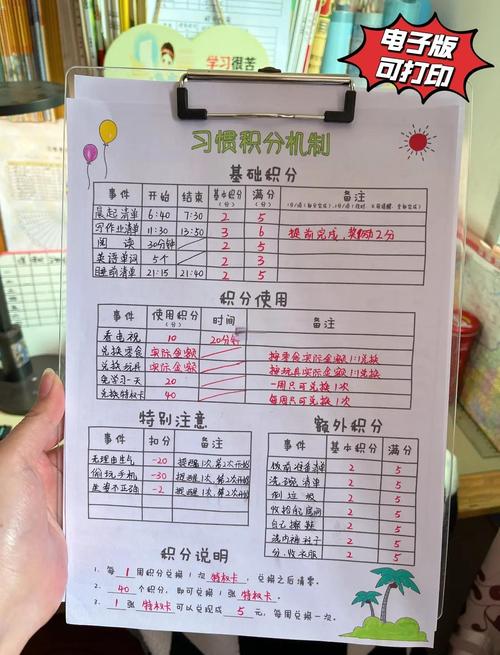 电子版
可打印
学习很苦
习惯积分机制
基础积分
事件 开始 结束 基本积分(分) 满分(分) 备注
晨起清单 6:40 7:30 2 5
写作业清单 11:30 13:30 3 6 提前完成,奖励2分
阅读 30分钟 2 5
英语单词 5个 2 3
睡前清单 21:15 21:40 2 5
积分使用
事件 使用积分(分) 时间 备注
看电视 10 20分钟
兑换零食 实际金额 按零食实际金额1:1兑换
兑换玩具 实际金额 按玩具实际金额1:1兑换
免学习一天 20 一周只可兑换1次
兑换特权卡 40 每周只可兑换1次
特别注意
事件 扣分 备注
无理由生气 -20 提醒1次,第2次开始
偷玩手机 -30 提醒1次,第2次开始
坐姿不正确 -2 提醒1次,第2次开始
额外积分
事件 基本积分 满分
饭前准备清单 2 5
洗碗清单 2 5
倒垃圾 2 5
收拾房间 2 5
自己擦鞋 2 5
洗内裤袜子 2 5
分、收衣服 2 5
积分说明
1、每1周积分兑换1次特权卡,兑换之后清零。
2、40个积分,即可兑换1张特权卡。
3、1张特权卡可以兑现成5元,每周兑换一次。